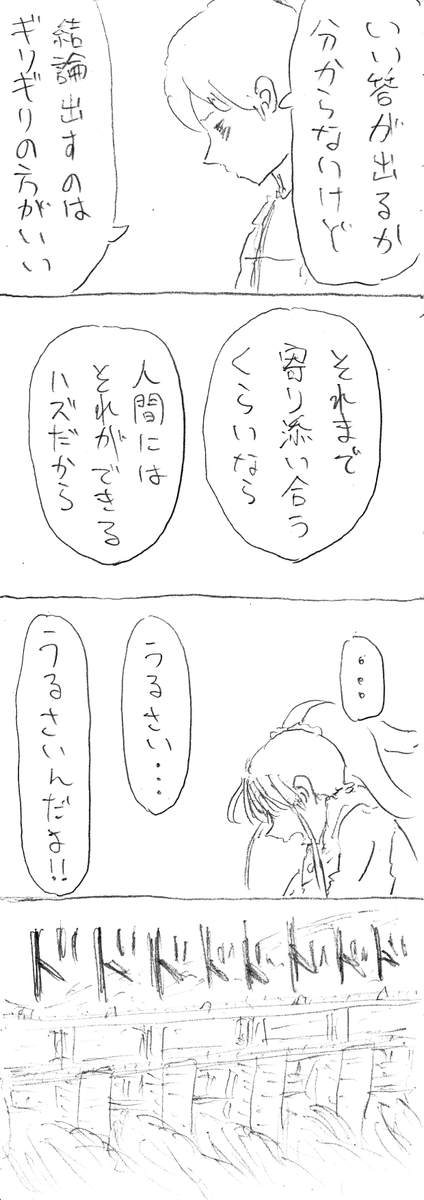 いい答が出るか
分からないけど
結論出すのは
ギリギリの方がいい
それまで
寄り添い合う
くらいなら
人間には
それができる
ハズだから
...
うるさい...
うるさいんだよ!!
ドドドドドドドド